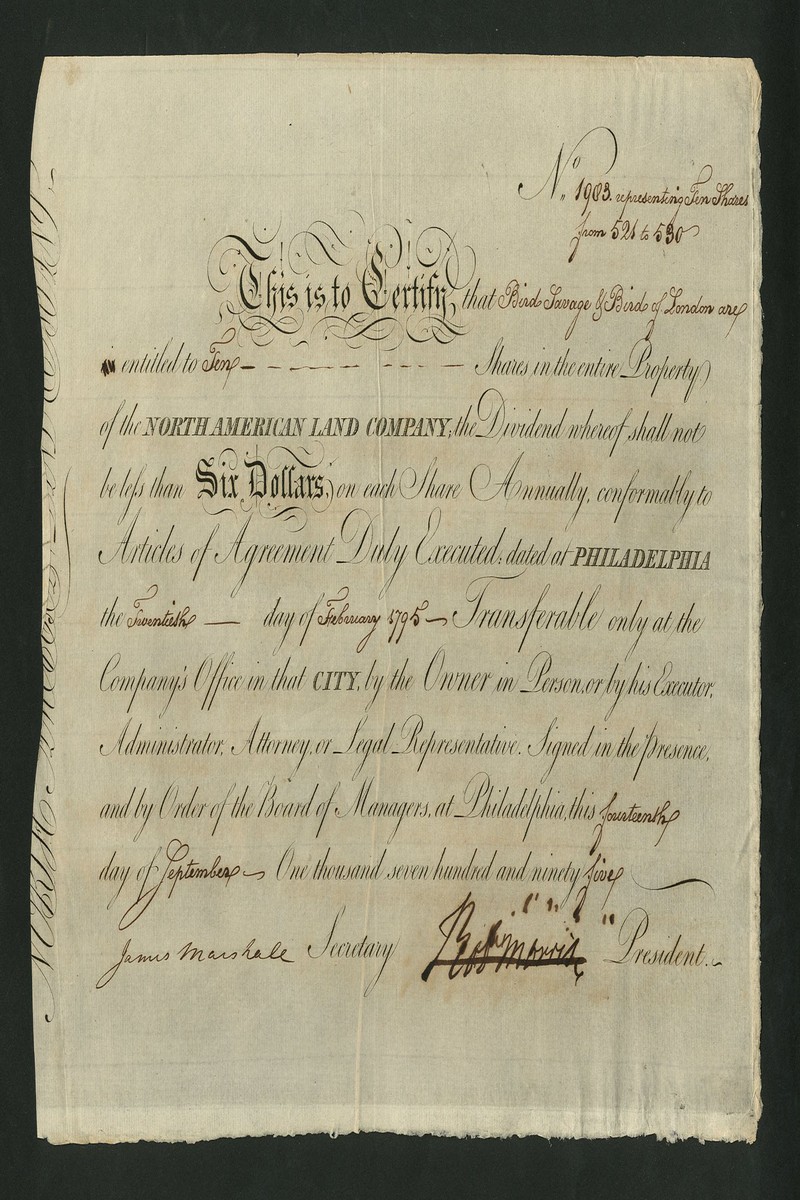 No. 1983. representing Ten Shares
from 521 to 530
This is to Certify, that Bird Savage & Bird of London are
entitled to Ten Shares in the entire Property
of the NORTH AMERICAN LAND COMPANY; the Dividend whereof shall not
be less than Six Dollars, on each Share Annually, conformably to
Articles of Agreement Duly Executed; dated at PHILADELPHIA
the Twentieth — day of February 1795 — Transferable only at the
Company's Office in that CITY, by the Owner in Person, or by his Executor,
Administrator, Attorney, or Legal Representative. Signed in the Presence,
and by Order of the Board of Managers, at Philadelphia, this fourteenth
day of September — One thousand seven hundred and ninety five
James Marshall Secretary Rob Morris President.